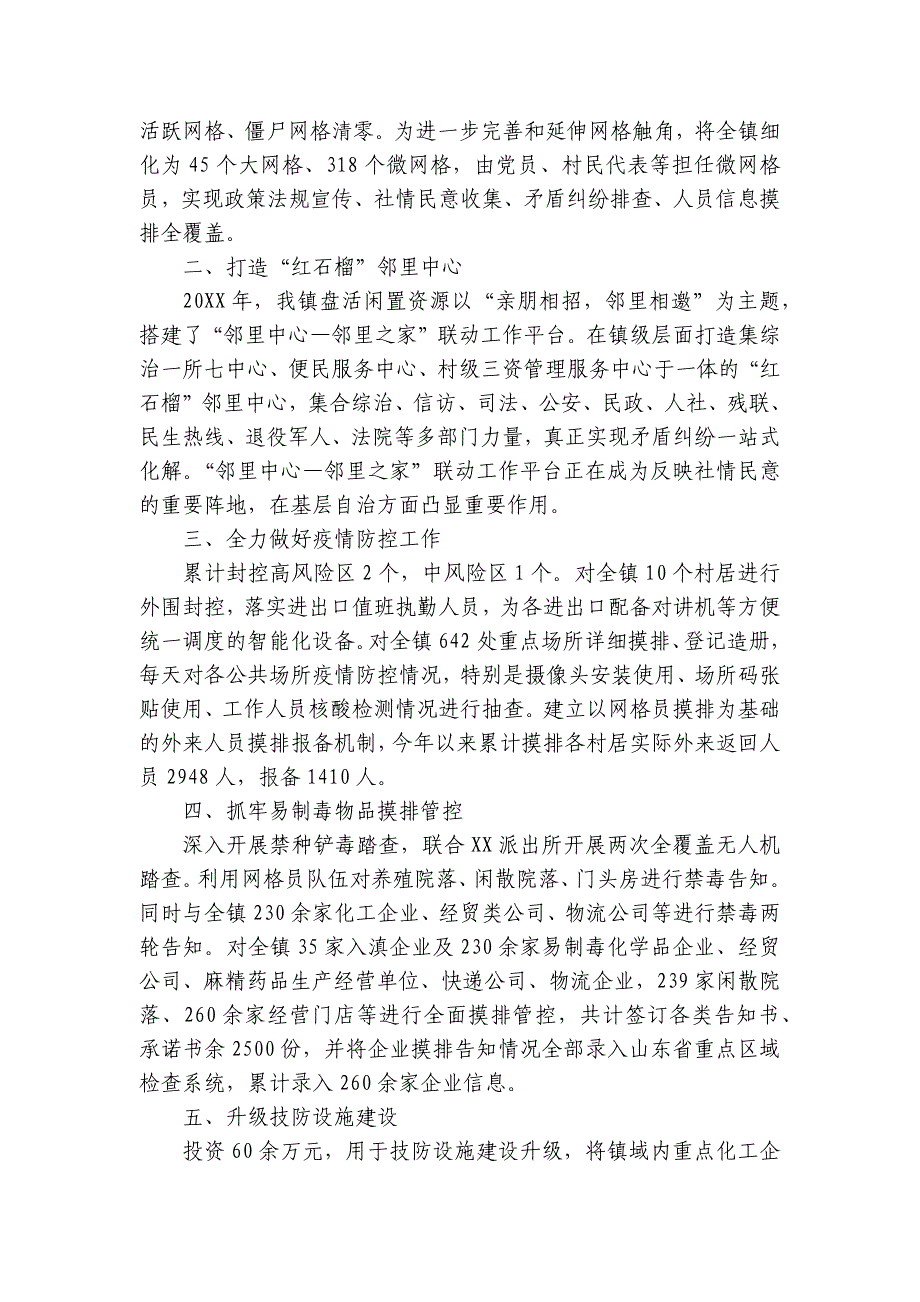 活跃网格、僵尸网格清零。为进一步完善和延伸网格触角，将全镇细
化为 45 个大网格、318 个微网格，由党员、村民代表等担任微网格
员，实现政策法规宣传、社情民意收集、矛盾纠纷排查、人员信息摸
排全覆盖。
二、打造“红石榴”邻里中心
20XX 年，我镇盘活闲置资源以“亲朋相招，邻里相邀”为主题，
搭建了“邻里中心—邻里之家”联动工作平台。在镇级层面打造集综
治一所七中心、便民服务中心、村级三资管理服务中心于一体的“红
石榴”邻里中心，集合综治、信访、司法、公安、民政、人社、残联、
民生热线、退役军人、法院等多部门力量，真正实现矛盾纠纷一站式
化解。“邻里中心—邻里之家”联动工作平台正在成为反映社情民意
的重要阵地，在基层自治方面凸显重要作用。
三、全力做好疫情防控工作
累计封控高风险区 2 个，中风险区 1 个。对全镇 10 个村居进行
外围封控，落实进出口值班执勤人员，为各进出口配备对讲机等方便
统一调度的智能化设备。对全镇 642 处重点场所详细摸排、登记造册，
每天对各公共场所疫情防控情况，特别是摄像头安装使用、场所码张
贴使用、工作人员核酸检测情况进行抽查。建立以网格员摸排为基础
的外来人员摸排报备机制，今年以来累计摸排各村居实际外来返回人
员 2948 人，报备 1410 人。
四、抓牢易制毒物品摸排管控
深入开展禁种铲毒踏查，联合 XX 派出所开展两次全覆盖无人机
踏查。利用网格员队伍对养殖院落、闲散院落、门头房进行禁毒告知。
同时与全镇 230 余家化工企业、经贸类公司、物流公司等进行禁毒两
轮告知。对全镇 35 家入滇企业及 230 余家易制毒化学品企业、经贸
公司、麻精药品生产经营单位、快递公司、物流企业，239 家闲散院
落、260 余家经营门店等进行全面摸排管控，共计签订各类告知书、
承诺书余 2500 份，并将企业摸排告知情况全部录入山东省重点区域
检查系统，累计录入 260 余家企业信息。
五、升级技防设施建设
投资 60 余万元，用于技防设施建设升级，将镇域内重点化工企